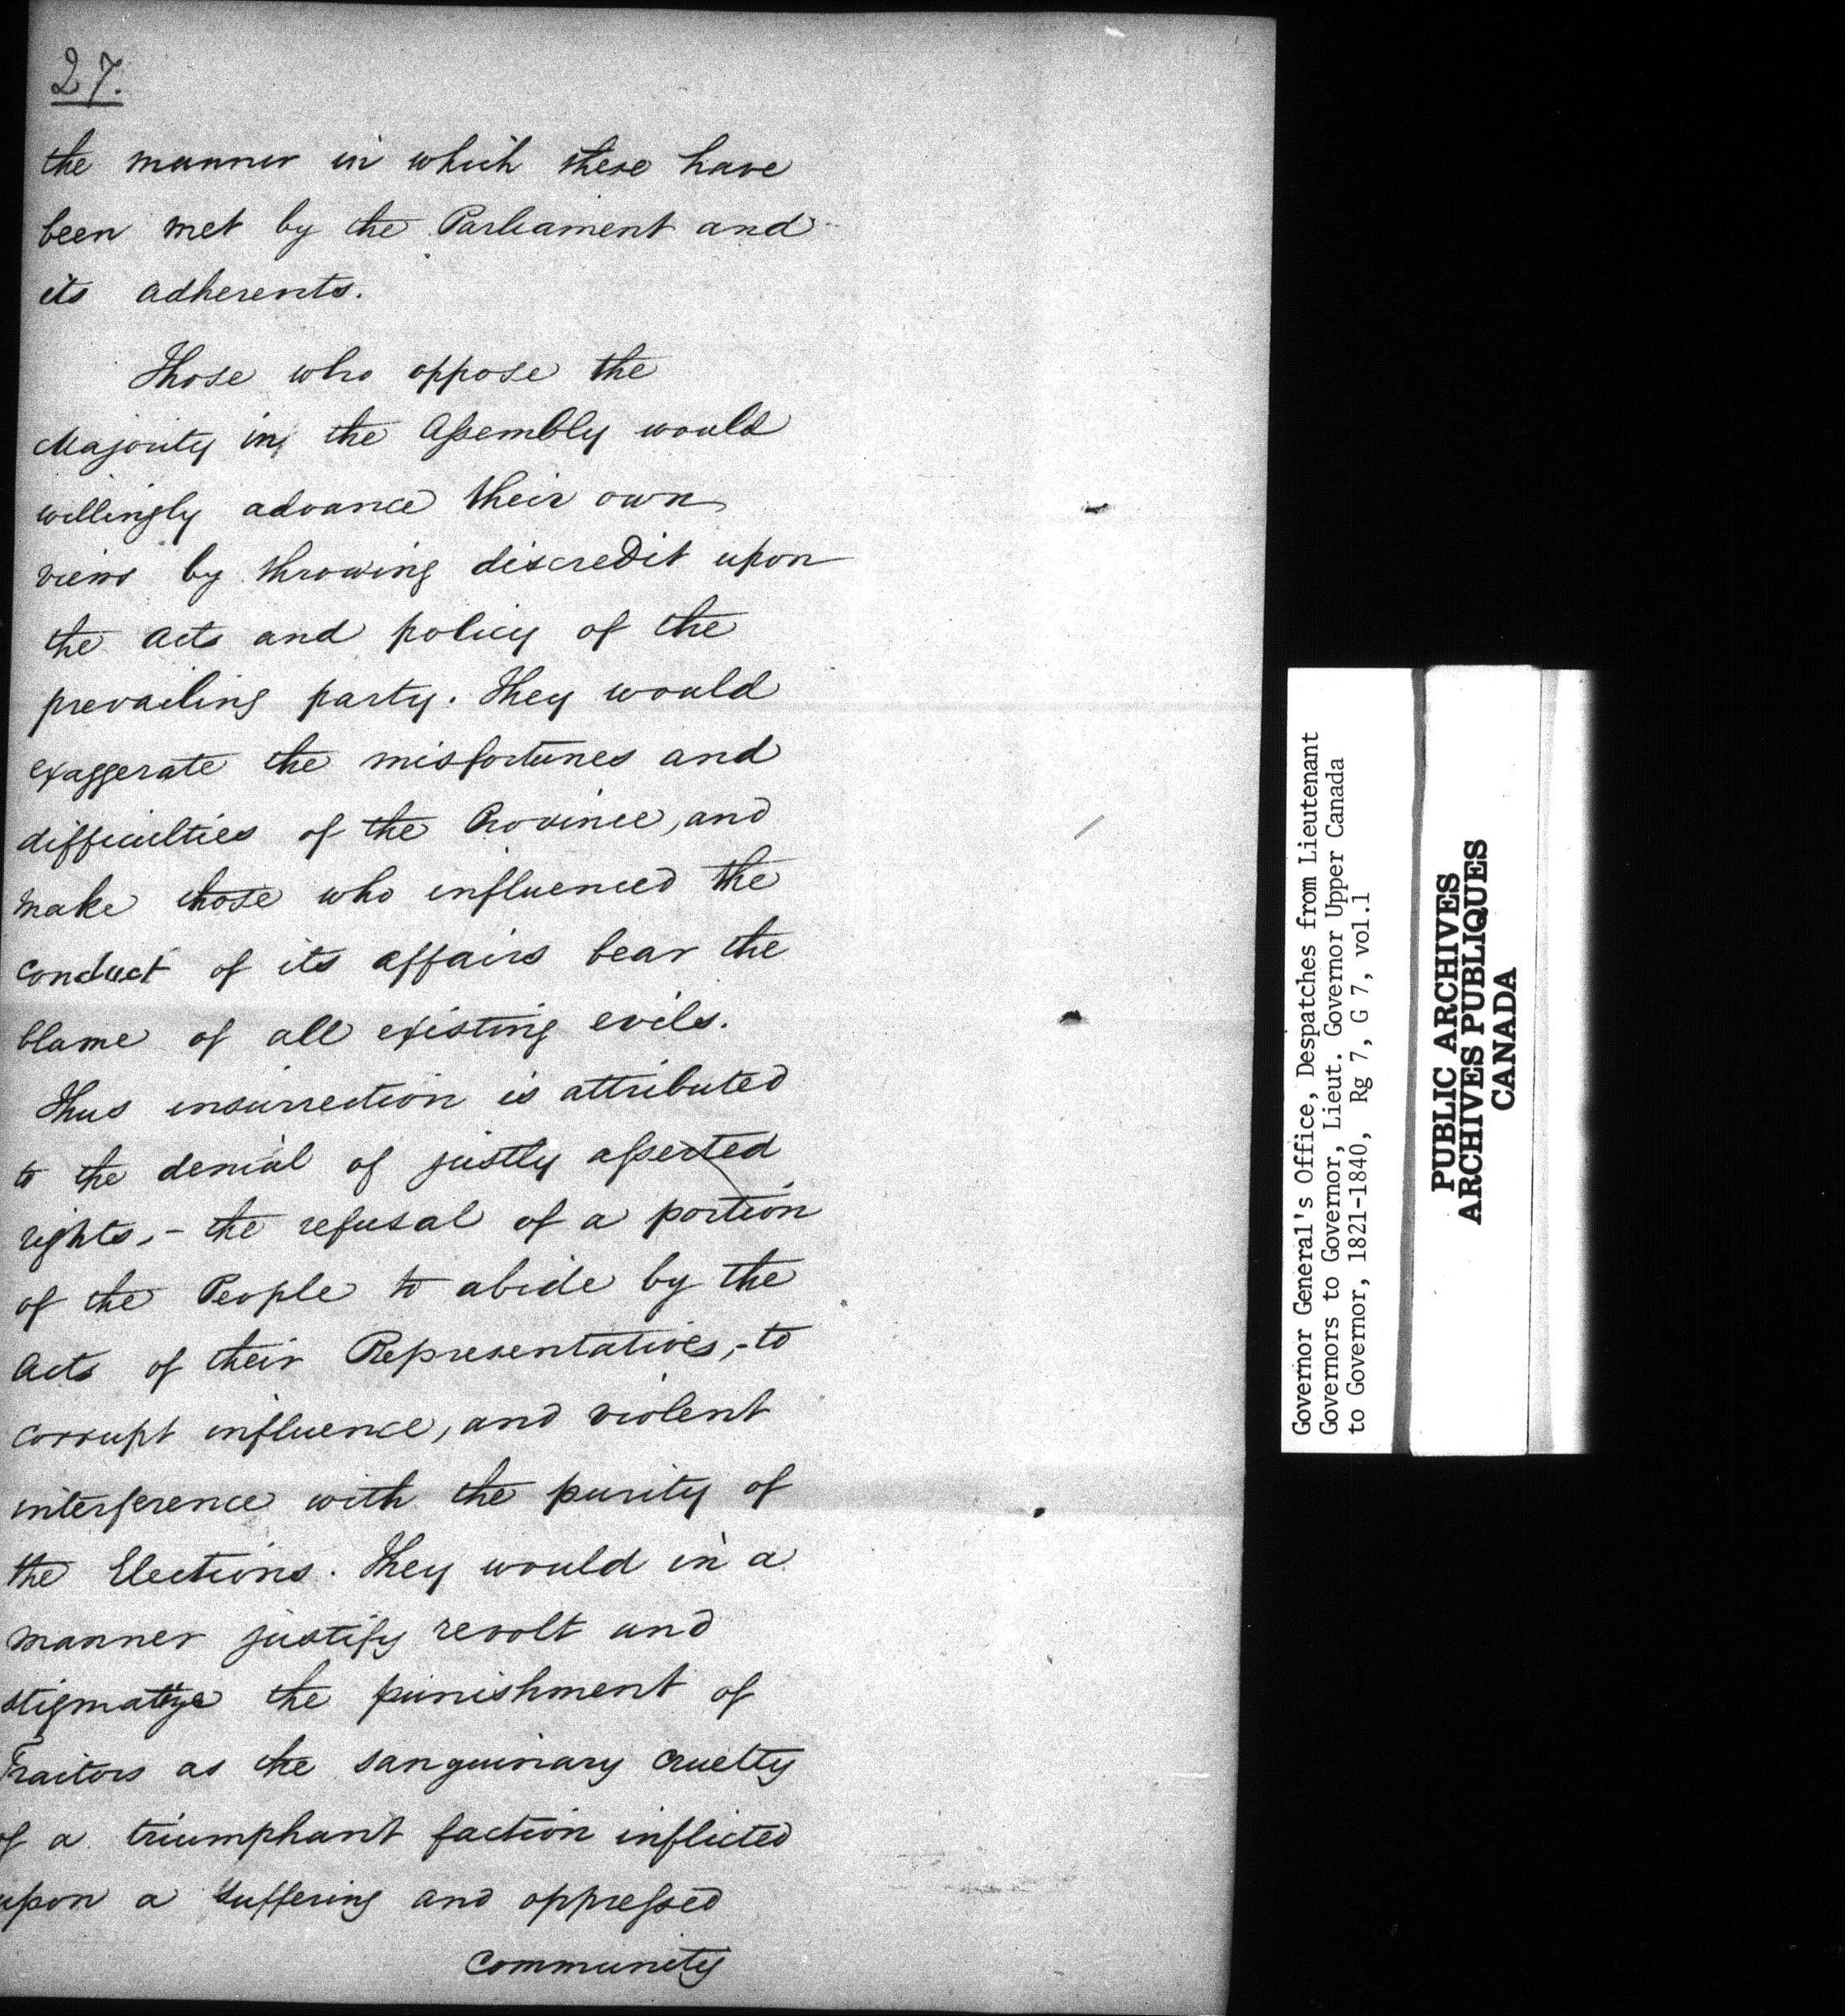 27.
the manner in which these have
been met by the Parliament and
its adherents.
Those who oppose the
Majority in the Assembly would
willingly advance their own
views by throwing discredit upon
the acts and policy of the
prevailing party. They would
exaggerate the misfortunes and
difficulties of the Province, and
make those who influenced the
conduct of its affairs bear the
blame of all existing evils.
Thus insurrection is attributed
to the denial of justly asserted
rights,- the refusal of a portion
of the People to abide by the
Acts of their Representatives,- to
corrupt influence, and violent
interference with the purity of
the Elections. They would in a
manner justify revolt and
stigmatize the punishment of
Traitors as the sanguinary cruelty
of a triumphant faction inflicted
upon a suffering and oppressed
community
Governor General's Office, Despatches from Lieutenant
Governors to Governor, Lieut. Governor Upper Canada
to Governor, 1821-1840, Rg 7, G 7, vol.1
PUBLIC ARCHIVES
ARCHIVES PUBLIQUES
CANADA